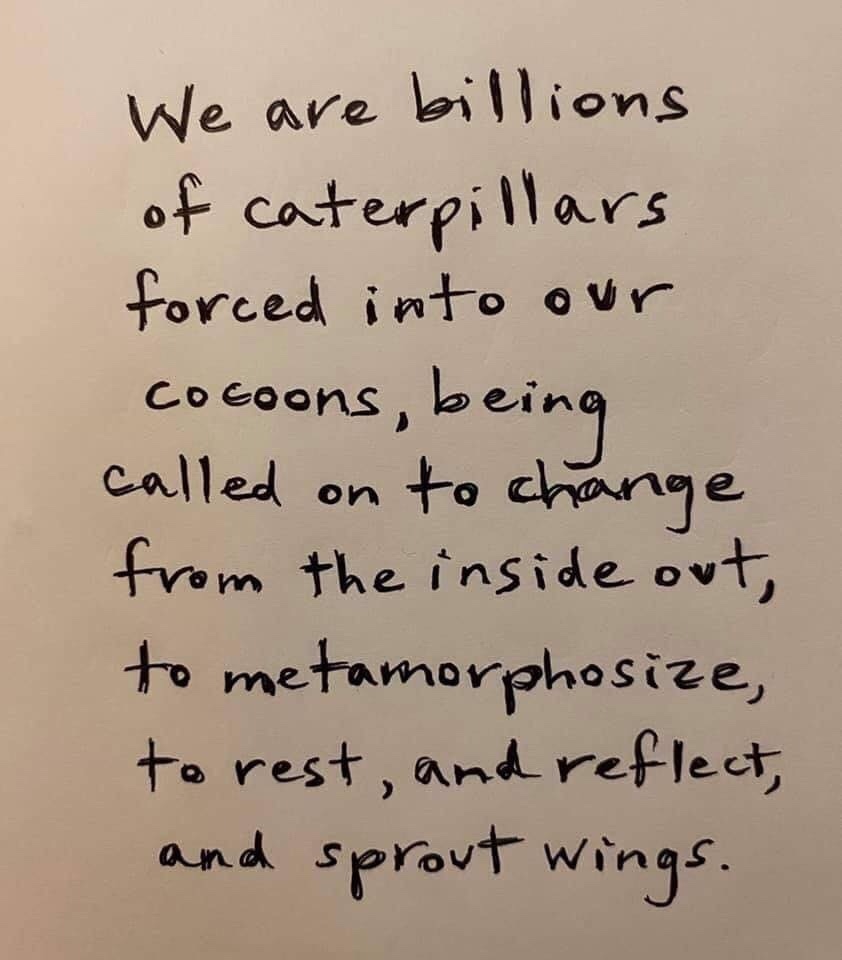 We are billions
of caterpillars
forced into our
cocoons, being
called on to change
from the inside out,
to metamorphosize,
to rest, and reflect,
and sprout wings.